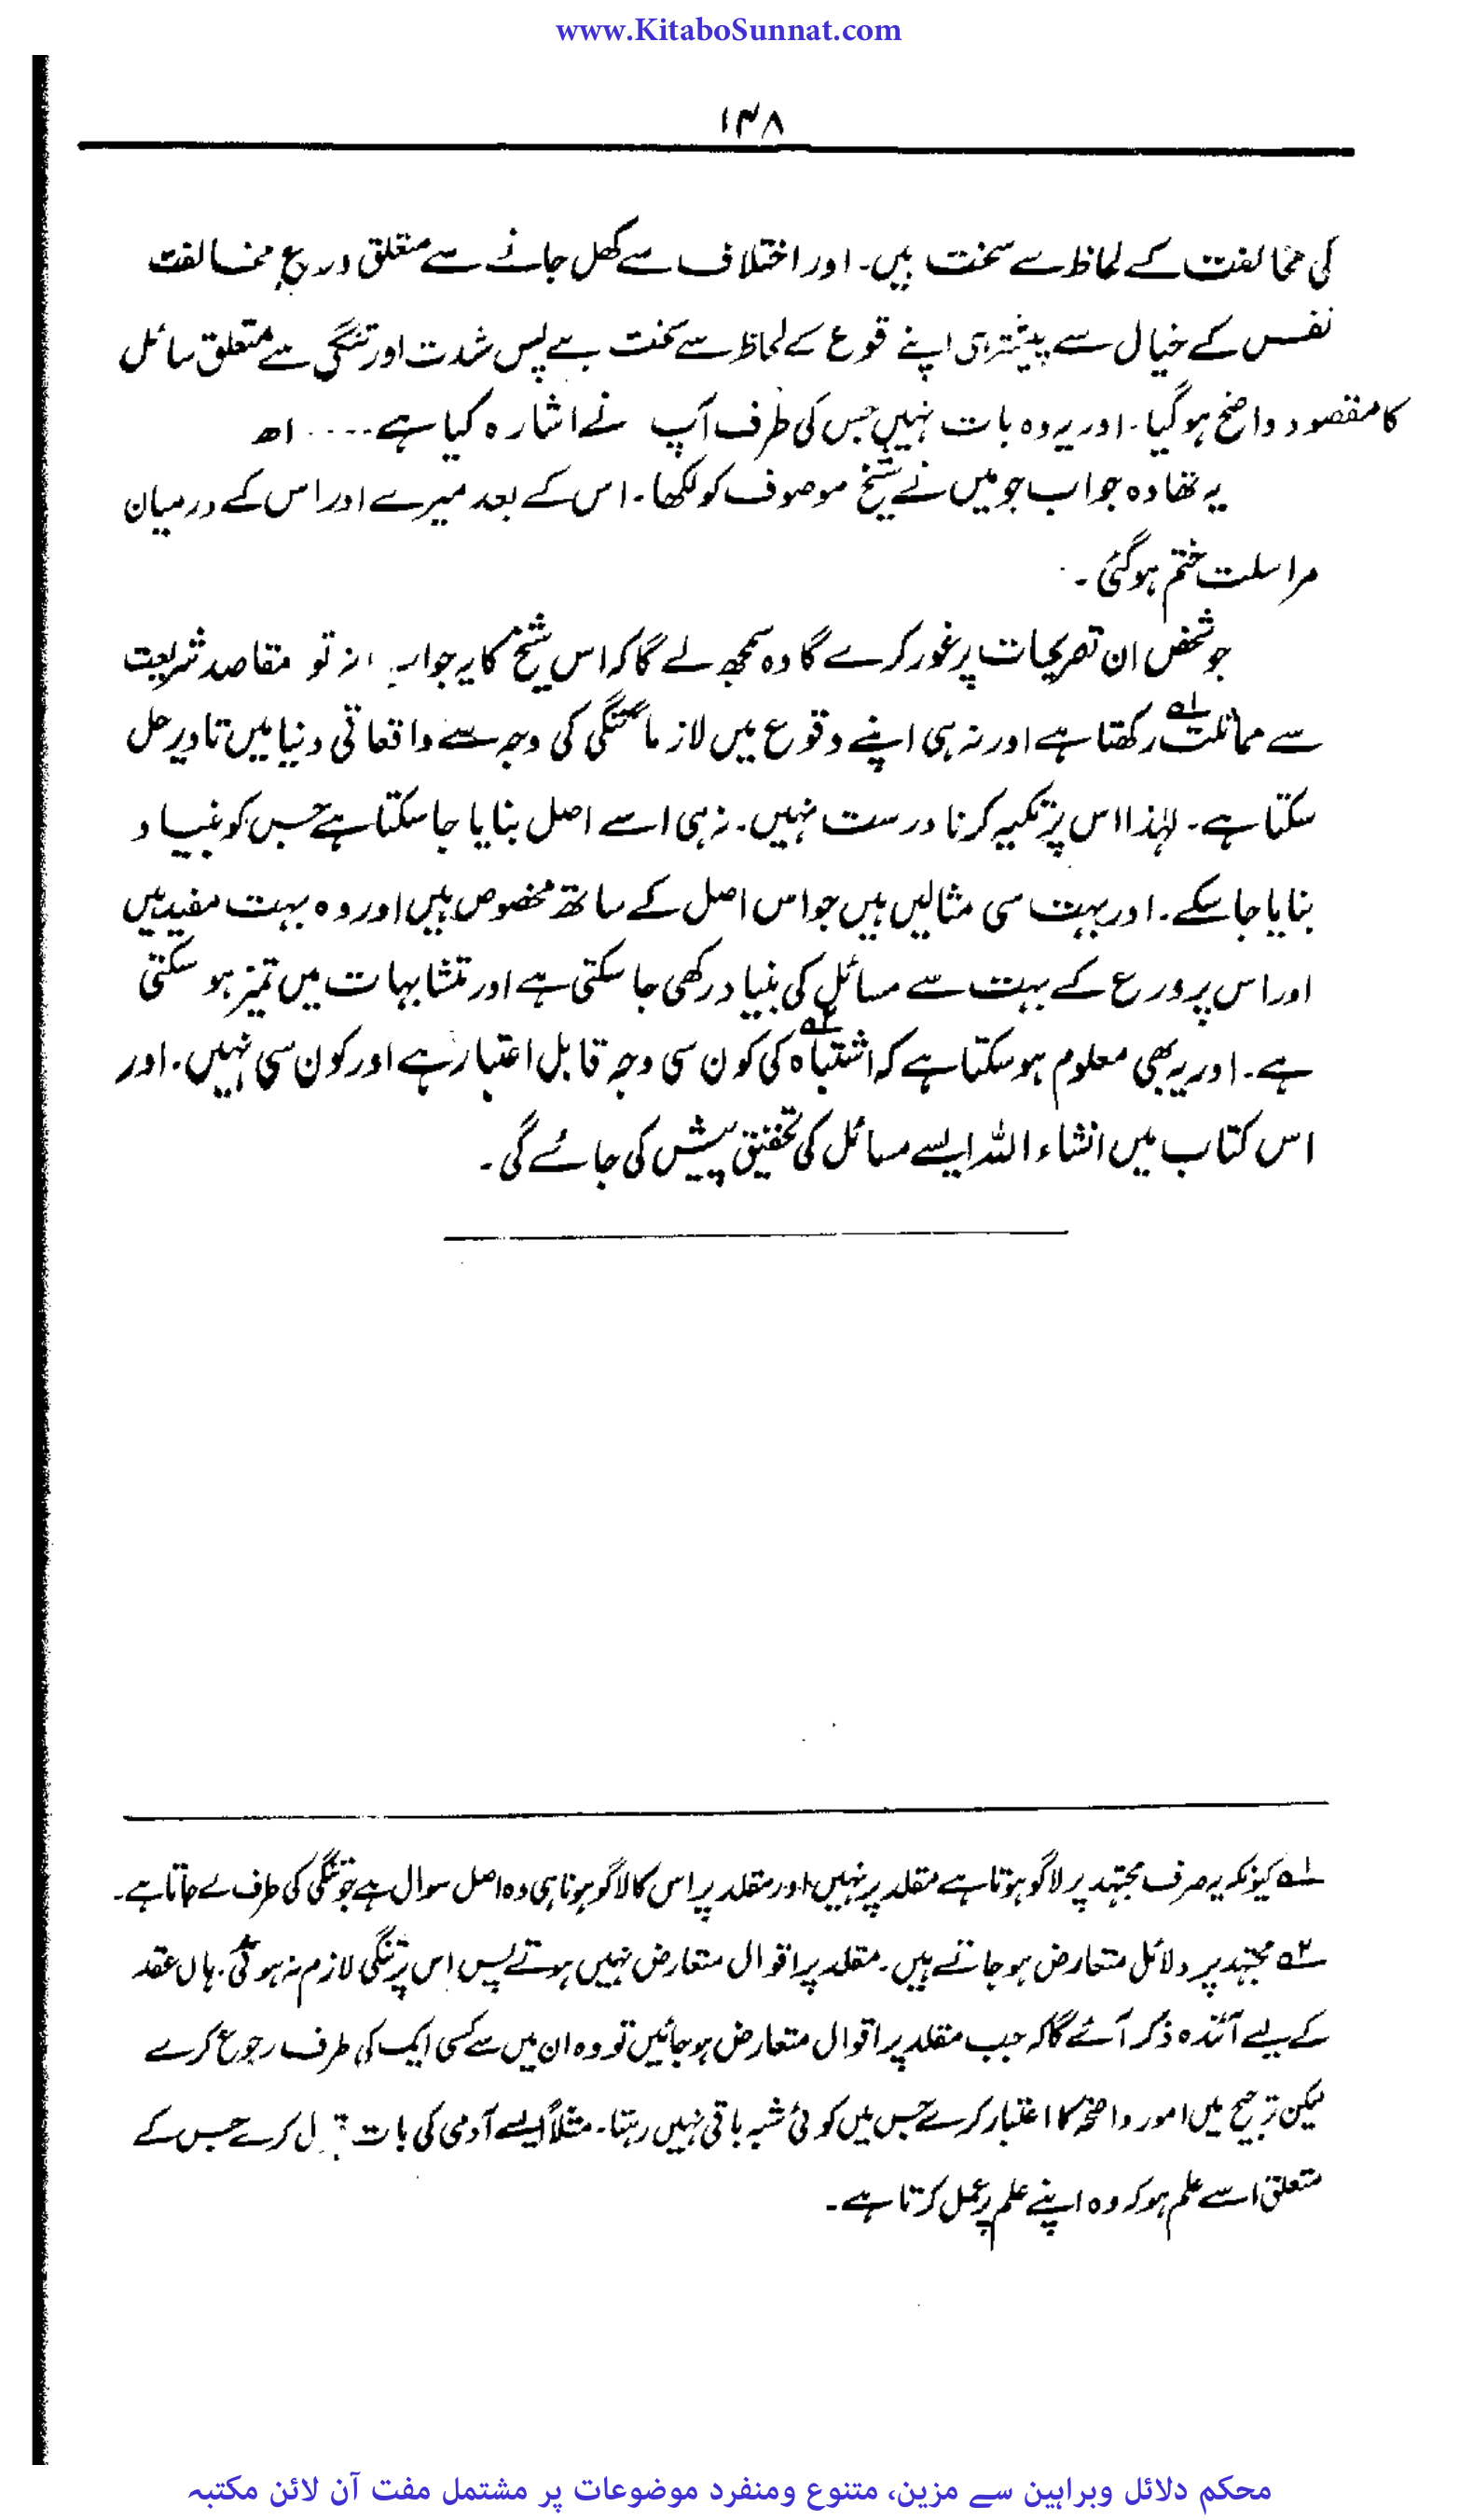 www.KitaboSunnat.com
۱۴۸
کی مخالفت کے لحاظ سے سخت ہیں۔ اور اختلاف سے کھل جانے سے متعلق ورع مخالفت
نفس کے خیال سے پیشتر ہی اپنے قوع کے لحاظ سے سخت ہے پس شدت اور تنگی سے متعلق سائل
کا مقصود واضح ہو گیا۔ اور یہ وہ بات نہیں جس کی طرف آپ نے اشارہ کیا ہے .... اھ
یہ تھا وہ جواب جو میں نے شیخ موصوف کو لکھا۔ اس کے بعد میرے اور اس کے درمیان
مراسلت ختم ہو گئی۔
جو شخص ان تصریحات پر غور کرے گا وہ سمجھ لے گا کہ اس شیخ کا یہ جواب نہ تو مقاصد شریعت
سے مماثلت رکھتا ہے اور نہ ہی اپنے وقوع میں لازما تنگی کی وجہ سے واقعاتی دنیا میں تادیر چل
سکتا ہے۔ لہٰذا اس پر تکیہ کرنا درست نہیں۔ نہ ہی اسے اصل بنایا جا سکتا ہے جس کو بنیاد
بنایا جا سکے۔ اور بہت سی مثالیں ہیں جو اس اصل کے ساتھ مخصوص ہیں اور وہ بہت مفید ہیں
اور اس پر ورع کے بہت سے مسائل کی بنیاد رکھی جا سکتی ہے اور متشابہات میں تمیز ہو سکتی
ہے۔ اور یہ بھی معلوم ہو سکتا ہے کہ اشتباہ۲ کی کون سی وجہ قابل اعتبار ہے اور کون سی نہیں۔ اور
اس کتاب میں انشاء اللہ ایسے مسائل کی تحقیق پیش کی جائے گی۔
۱ کیونکہ یہ صرف مجتہد پر لاگو ہوتا ہے مقلد پر نہیں اور مقلد پر اس کا لاگو ہونا ہی وہ اصل سوال ہے جو تنگی کی طرف لے جاتا ہے۔
۲ مجتہد پر دلائل متعارض ہو جاتے ہیں۔ مقلد پر اقوال متعارض نہیں ہوتے پس اس پر تنگی لازم نہ ہو گی۔ ہاں عقد
کے لیے آئندہ ذکر آئے گا کہ جب مقلد پر اقوال متعارض ہو جائیں تو وہ ان میں سے کسی ایک کی طرف رجوع کرے
لیکن ترجیح میں امور واضحہ کا اعتبار کرے جس میں کوئی شبہ باقی نہیں رہتا۔ مثلاً ایسے آدمی کی بات کرے جس کے
متعلق اسے علم ہو کہ وہ اپنے علم پر عمل کرتا ہے۔
محکم دلائل وبراہین سے مزین، متنوع ومنفرد موضوعات پر مشتمل مفت آن لائن مکتبہ